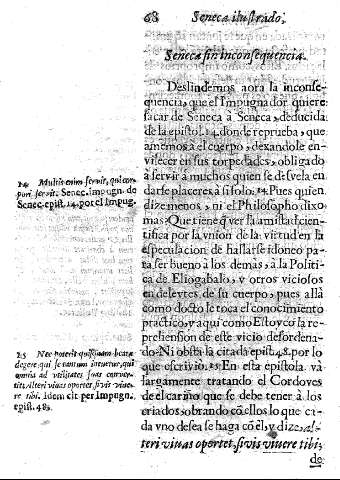 68 Seneca ilustrado,
Seneca sin inconsequencia.
Deslindemos aora la inconse-
quencia, que el Impugnador quiere
sacar de Seneca à Seneca, deducida
de la epistol. 14. donde reprueba, que
amemos à el cuerpo, dexandole en-
vilecer en sus torpedades, obligado
à servir à muchos quien se desvela en
darse placeres à si solo. 24. Pues quien
dize menos, ni el Philosopho dixo
mas: Que tiene q̃ ver la amistad cien-
tifica por la vnion de la virtud en la
especulacion de hallarse idoneo pa-
ra ser bueno à los demàs, à la Politi-
ca de Eliogabalo, y otros viciosos
en deleytes de su cuerpo, pues allà
como docto le toca el conocimiento
practico, y aqui como Estoyco la re-
prehension de este vicio desordena-
do. Ni obsta la citada epist. 48. por lo
que escrivio. 25 En esta epistola. và
largamente tratando el Cordoves
de el cariño que se debe tener à los
criados, obrando cõ ellos lo que ca-
da vno desea se haga cõ èl, y dize, al-
teri vivas oportet, si vis vivere tibi;
do
24 Multis enim servit, qui cor-
pori servit. Senec. impugn. de
Senec. epist. 14. por el Impug.
25 Nec poterit quisquam beate
degere, qui se tantum intuetur, qui
omnia ad utilitates suas conver-
tit, alteri vivas oportet, si vis vive-
re tibi. Idem cit. per Impugn.
epist. 48.